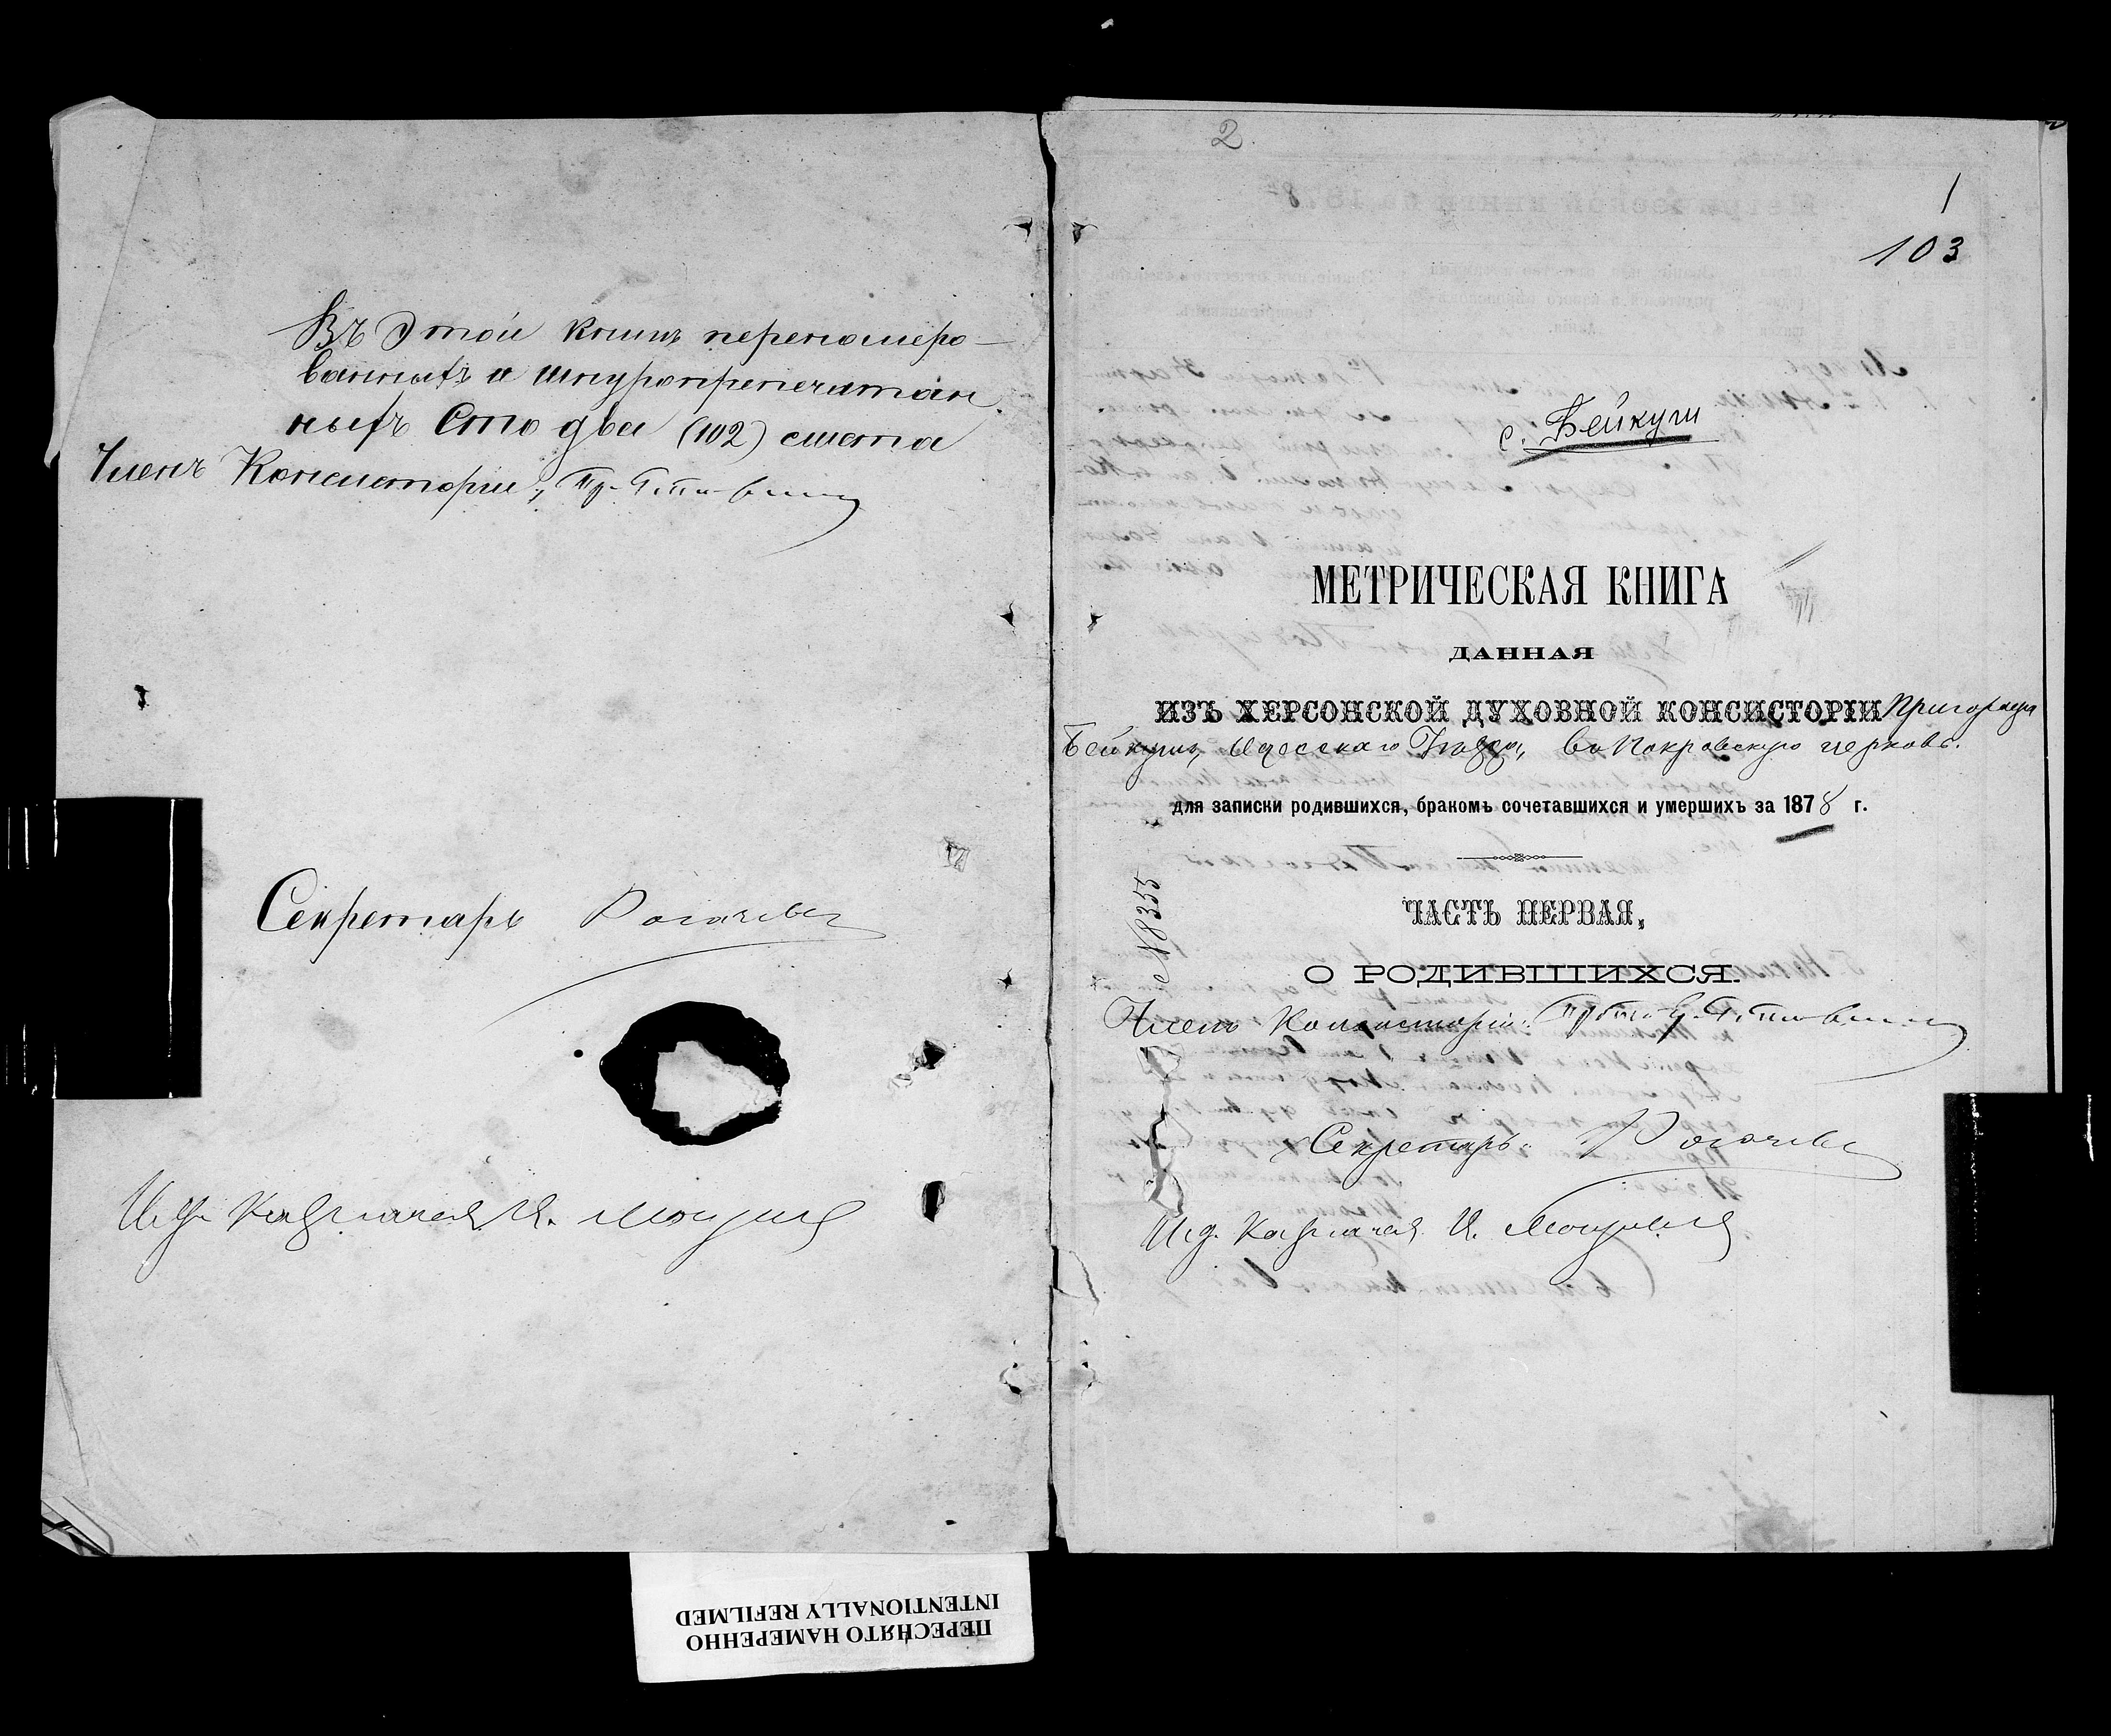 Въ этой книгѣ перенумеро-
ванныхъ и шнуропрепечатан
ныхъ Сто два (102) листа
Членъ Консисторіи,
Секретарь Рогачевъ
И. д. Казначея И.
ПЕРЕСНЯТО НАМЕРЕННО
INTENTIONALLY REFILMED
2
1
103
с. Бейкуш
МЕТРИЧЕСКАЯ КНИГА
ДАННАЯ
ИЗЪ ХЕРСОНСКОЙ ДУХОВНОЙ КОНСИСТОРІИ Пригорода
Бейкуша, Одесскаго Уѣзда, въ Покровскую церковь.
для записки родившихся, бракомъ сочетавшихся и умершихъ за 1878 г.
№ 8355
ЧАСТЬ ПЕРВАЯ,
О РОДИВШИХСЯ.
Членъ Консисторіи:
Секретарь: Рогачевъ
И. д. Казначея И.